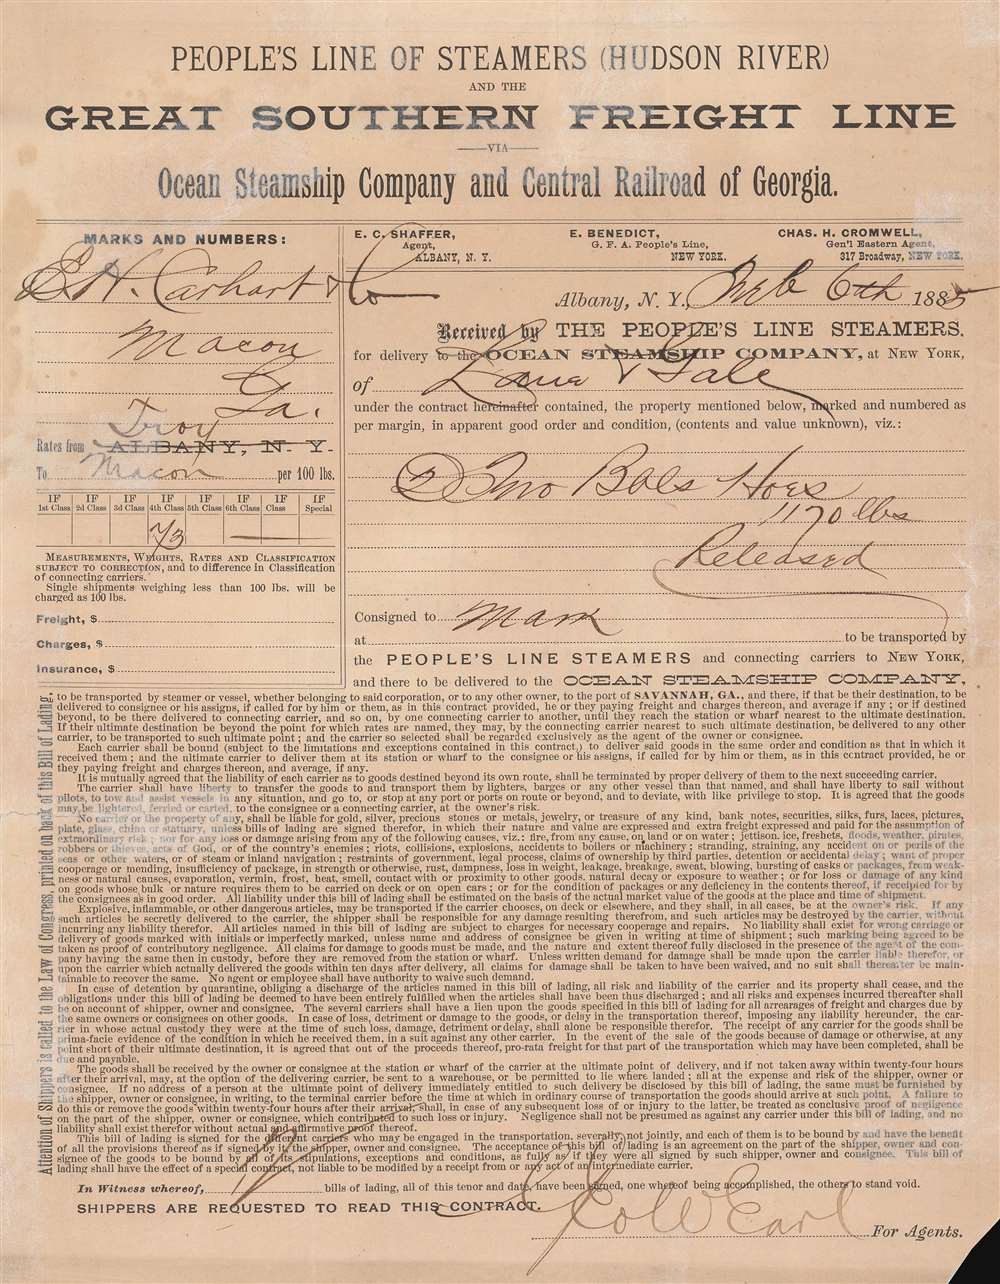 PEOPLE'S LINE OF STEAMERS (HUDSON RIVER)
AND THE
GREAT SOUTHERN FREIGHT LINE
VIA
Ocean Steamship Company and Central Railroad of Georgia.
MARKS AND NUMBERS:
E. H. Carhart & Co
Macon
Ga.
Troy
Rates from ALBANY, N. Y.
To Macon per 100 lbs.
IF 1st Class IF 2d Class IF 3d Class IF 4th Class IF 5th Class IF 6th Class IF Class IF Special
73
MEASUREMENTS, WEIGHTS, RATES AND CLASSIFICATION
SUBJECT TO CORRECTION, and to difference in Classification
of connecting carriers.
Single shipments weighing less than 100 lbs. will be
charged as 100 lbs.
Freight, $
Charges, $
Insurance, $
E. C. SHAFFER,
Agent,
ALBANY, N. Y.
E. BENEDICT,
G. F. A. People's Line,
NEW YORK.
CHAS. H. CROMWELL,
Gen'l Eastern Agent,
317 Broadway, NEW YORK.
Albany, N. Y., 6th 1885
Received by THE PEOPLE'S LINE STEAMERS,
for delivery to the OCEAN STEAMSHIP COMPANY, at NEW YORK,
of Lane & Gale
under the contract hereinafter contained, the property mentioned below, marked and numbered as
per margin, in apparent good order and condition, (contents and value unknown), viz.:
2 Two Bbls Hoes
1170 lbs
Released
Consigned to Mark
at to be transported by
the PEOPLE'S LINE STEAMERS and connecting carriers to NEW YORK,
and there to be delivered to the OCEAN STEAMSHIP COMPANY,
to be transported by steamer or vessel, whether belonging to said corporation, or to any other owner, to the port of SAVANNAH, GA., and there, if that be their destination, to be
delivered to consignee or his assigns, if called for by him or them, as in this contract provided, he or they paying freight and charges thereon, and average if any; or if destined
beyond, to be there delivered to connecting carrier, and so on, by one connecting carrier to another, until they reach the station or wharf nearest to the ultimate destination.
If their ultimate destination be beyond the point for which rates are named, they may, by the connecting carrier nearest to such ultimate destination, be delivered to any other
carrier, to be transported to such ultimate point; and the carrier so selected shall be regarded exclusively as the agent of the owner or consignee.
Each carrier shall be bound (subject to the limitations and exceptions contained in this contract,) to deliver said goods in the same order and condition as that in which it
received them; and the ultimate carrier to deliver them at its station or wharf to the consignee or his assigns, if called for by him or them, as in this contract provided, he or
they paying freight and charges thereon, and average, if any.
It is mutually agreed that the liability of each carrier as to goods destined beyond its own route, shall be terminated by proper delivery of them to the next succeeding carrier.
The carrier shall have liberty to transfer the goods to and transport them by lighters, barges or any other vessel than that named, and shall have liberty to sail without
pilots, to tow and assist vessels in any situation, and go to, or stop at any port or ports on route or beyond, and to deviate, with like privilege to stop. It is agreed that the goods
may be lightered, ferried or carted, to the consignee or a connecting carrier, at the owner's risk.
No carrier or the property of any, shall be liable for gold, silver, precious stones or metals, jewelry, or treasure of any kind, bank notes, securities, silks, furs, laces, pictures,
plate, glass, china or statuary, unless bills of lading are signed therefor, in which their nature and value are expressed and extra freight expressed and paid for the assumption of
extraordinary risk; nor for any loss or damage arising from any of the following causes, viz.: fire, from any cause, on land or on water; jettison, ice, freshets, floods, weather, pirates,
robbers or thieves, acts of God, or of the country's enemies; riots, collisions, explosions, accidents to boilers or machinery; stranding, straining, any accident on or perils of the
seas or other waters, or of steam or inland navigation; restraints of government, legal process, claims of ownership by third parties, detention or accidental delay; want of proper
cooperage or mending, insufficiency of package, in strength or otherwise, rust, dampness, loss in weight, leakage, breakage, sweat, blowing, bursting of casks or packages, from weak-
ness or natural causes, evaporation, vermin, frost, heat, smell, contact with or proximity to other goods, natural decay or exposure to weather; or for loss or damage of any kind
on goods whose bulk or nature requires them to be carried on deck or on open cars; or for the condition of packages or any deficiency in the contents thereof, if receipted for by
the consignees as in good order. All liability under this bill of lading shall be estimated on the basis of the actual market value of the goods at the place and time of shipment.
Explosive, inflammable, or other dangerous articles, may be transported if the carrier chooses, on deck or elsewhere, and they shall, in all cases, be at the owner's risk. If any
such articles be secretly delivered to the carrier, the shipper shall be responsible for any damage resulting therefrom, and such articles may be destroyed by the carrier, without
incurring any liability therefor. All articles named in this bill of lading are subject to charges for necessary cooperage and repairs. No liability shall exist for wrong carriage or
delivery of goods marked with initials or imperfectly marked, unless name and address of consignee be given in writing at time of shipment; such marking being agreed to be
taken as proof of contributory negligence. All claims for damage to goods must be made, and the nature and extent thereof fully disclosed in the presence of the agent of the com-
pany having the same then in custody, before they are removed from the station or wharf. Unless written demand for damage shall be made upon the carrier liable therefor, or
upon the carrier which actually delivered the goods within ten days after delivery, all claims for damage shall be taken to have been waived, and no suit shall thereafter be main-
tainable to recover the same. No agent or employee shall have authority to waive such demand.
In case of detention by quarantine, obliging a discharge of the articles named in this bill of lading, all risk and liability of the carrier and its property shall cease, and the
obligations under this bill of lading be deemed to have been entirely fulfilled when the articles shall have been thus discharged; and all risks and expenses incurred thereafter shall
be on account of shipper, owner and consignee. The several carriers shall have a lien upon the goods specified in this bill of lading for all arrearages of freight and charges due by
the same owners or consignees on other goods. In case of loss, detriment or damage to the goods, or delay in the transportation thereof, imposing any liability hereunder, the car-
rier in whose actual custody they were at the time of such loss, damage, detriment or delay, shall alone be responsible therefor. The receipt of any carrier for the goods shall be
prima-facie evidence of the condition in which he received them, in a suit against any other carrier. In the event of the sale of the goods because of damage or otherwise, at any
point short of their ultimate destination, it is agreed that out of the proceeds thereof, pro-rata freight for that part of the transportation which may have been completed, shall be
due and payable.
The goods shall be received by the owner or consignee at the station or wharf of the carrier at the ultimate point of delivery, and if not taken away within twenty-four hours
after their arrival, may, at the option of the delivering carrier, be sent to a warehouse, or be permitted to lie where landed; all at the expense and risk of the shipper, owner or
consignee. If no address of a person at the ultimate point of delivery immediately entitled to such delivery be disclosed by this bill of lading, the same must be furnished by
the shipper, owner or consignee, in writing, to the terminal carrier before the time at which in ordinary course of transportation the goods should arrive at such point. A failure to
do this or remove the goods within twenty-four hours after their arrival, shall, in case of any subsequent loss of or injury to the latter, be treated as conclusive proof of negligence
on the part of the shipper, owner or consignee, which contributed to such loss or injury. Negligence shall not be presumed against any carrier under this bill of lading, and no
liability shall exist therefor without actual and affirmative proof thereof.
This bill of lading is signed for the different carriers who may be engaged in the transportation, severally, not jointly, and each of them is to be bound by and have the benefit
of all the provisions thereof as if signed by it, the shipper, owner and consignee. The acceptance of this bill of lading is an agreement on the part of the shipper, owner and con-
signee of the goods to be bound by all of its stipulations, exceptions and conditions, as fully as if they were all signed by such shipper, owner and consignee. This bill of
lading shall have the effect of a special contract, not liable to be modified by a receipt from or any act of an intermediate carrier.
In Witness whereof, bills of lading, all of this tenor and date, have been signed, one whereof being accomplished, the others to stand void.
SHIPPERS ARE REQUESTED TO READ THIS CONTRACT.
Earl
For Agents.
Attention of Shippers is called to the Law of Congress, printed on back of this Bill of Lading.